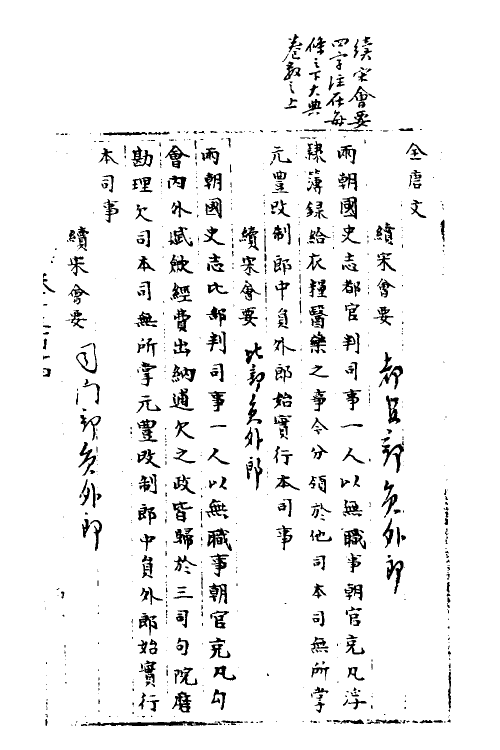 續宋會要
四字注在每
條之下大典
卷數之上
全唐文
續宋會要 都官部員外郎
兩朝國史志都官判司事一人以無職事朝官充凡浮
隸簿録給衣糧醫藥之事今分領於他司本司無所掌
元豐改制郎中員外郎始實行本司事
續宋會要 比部員外郎
兩朝國史志比部判司事一人以無職事朝官充凡勾
會內外賦斂經費出納逋欠之政皆歸於三司句院磨
勘理欠司本司無所掌元豐改制郎中員外郎始實行
本司事
續宋會要 司門部員外郎